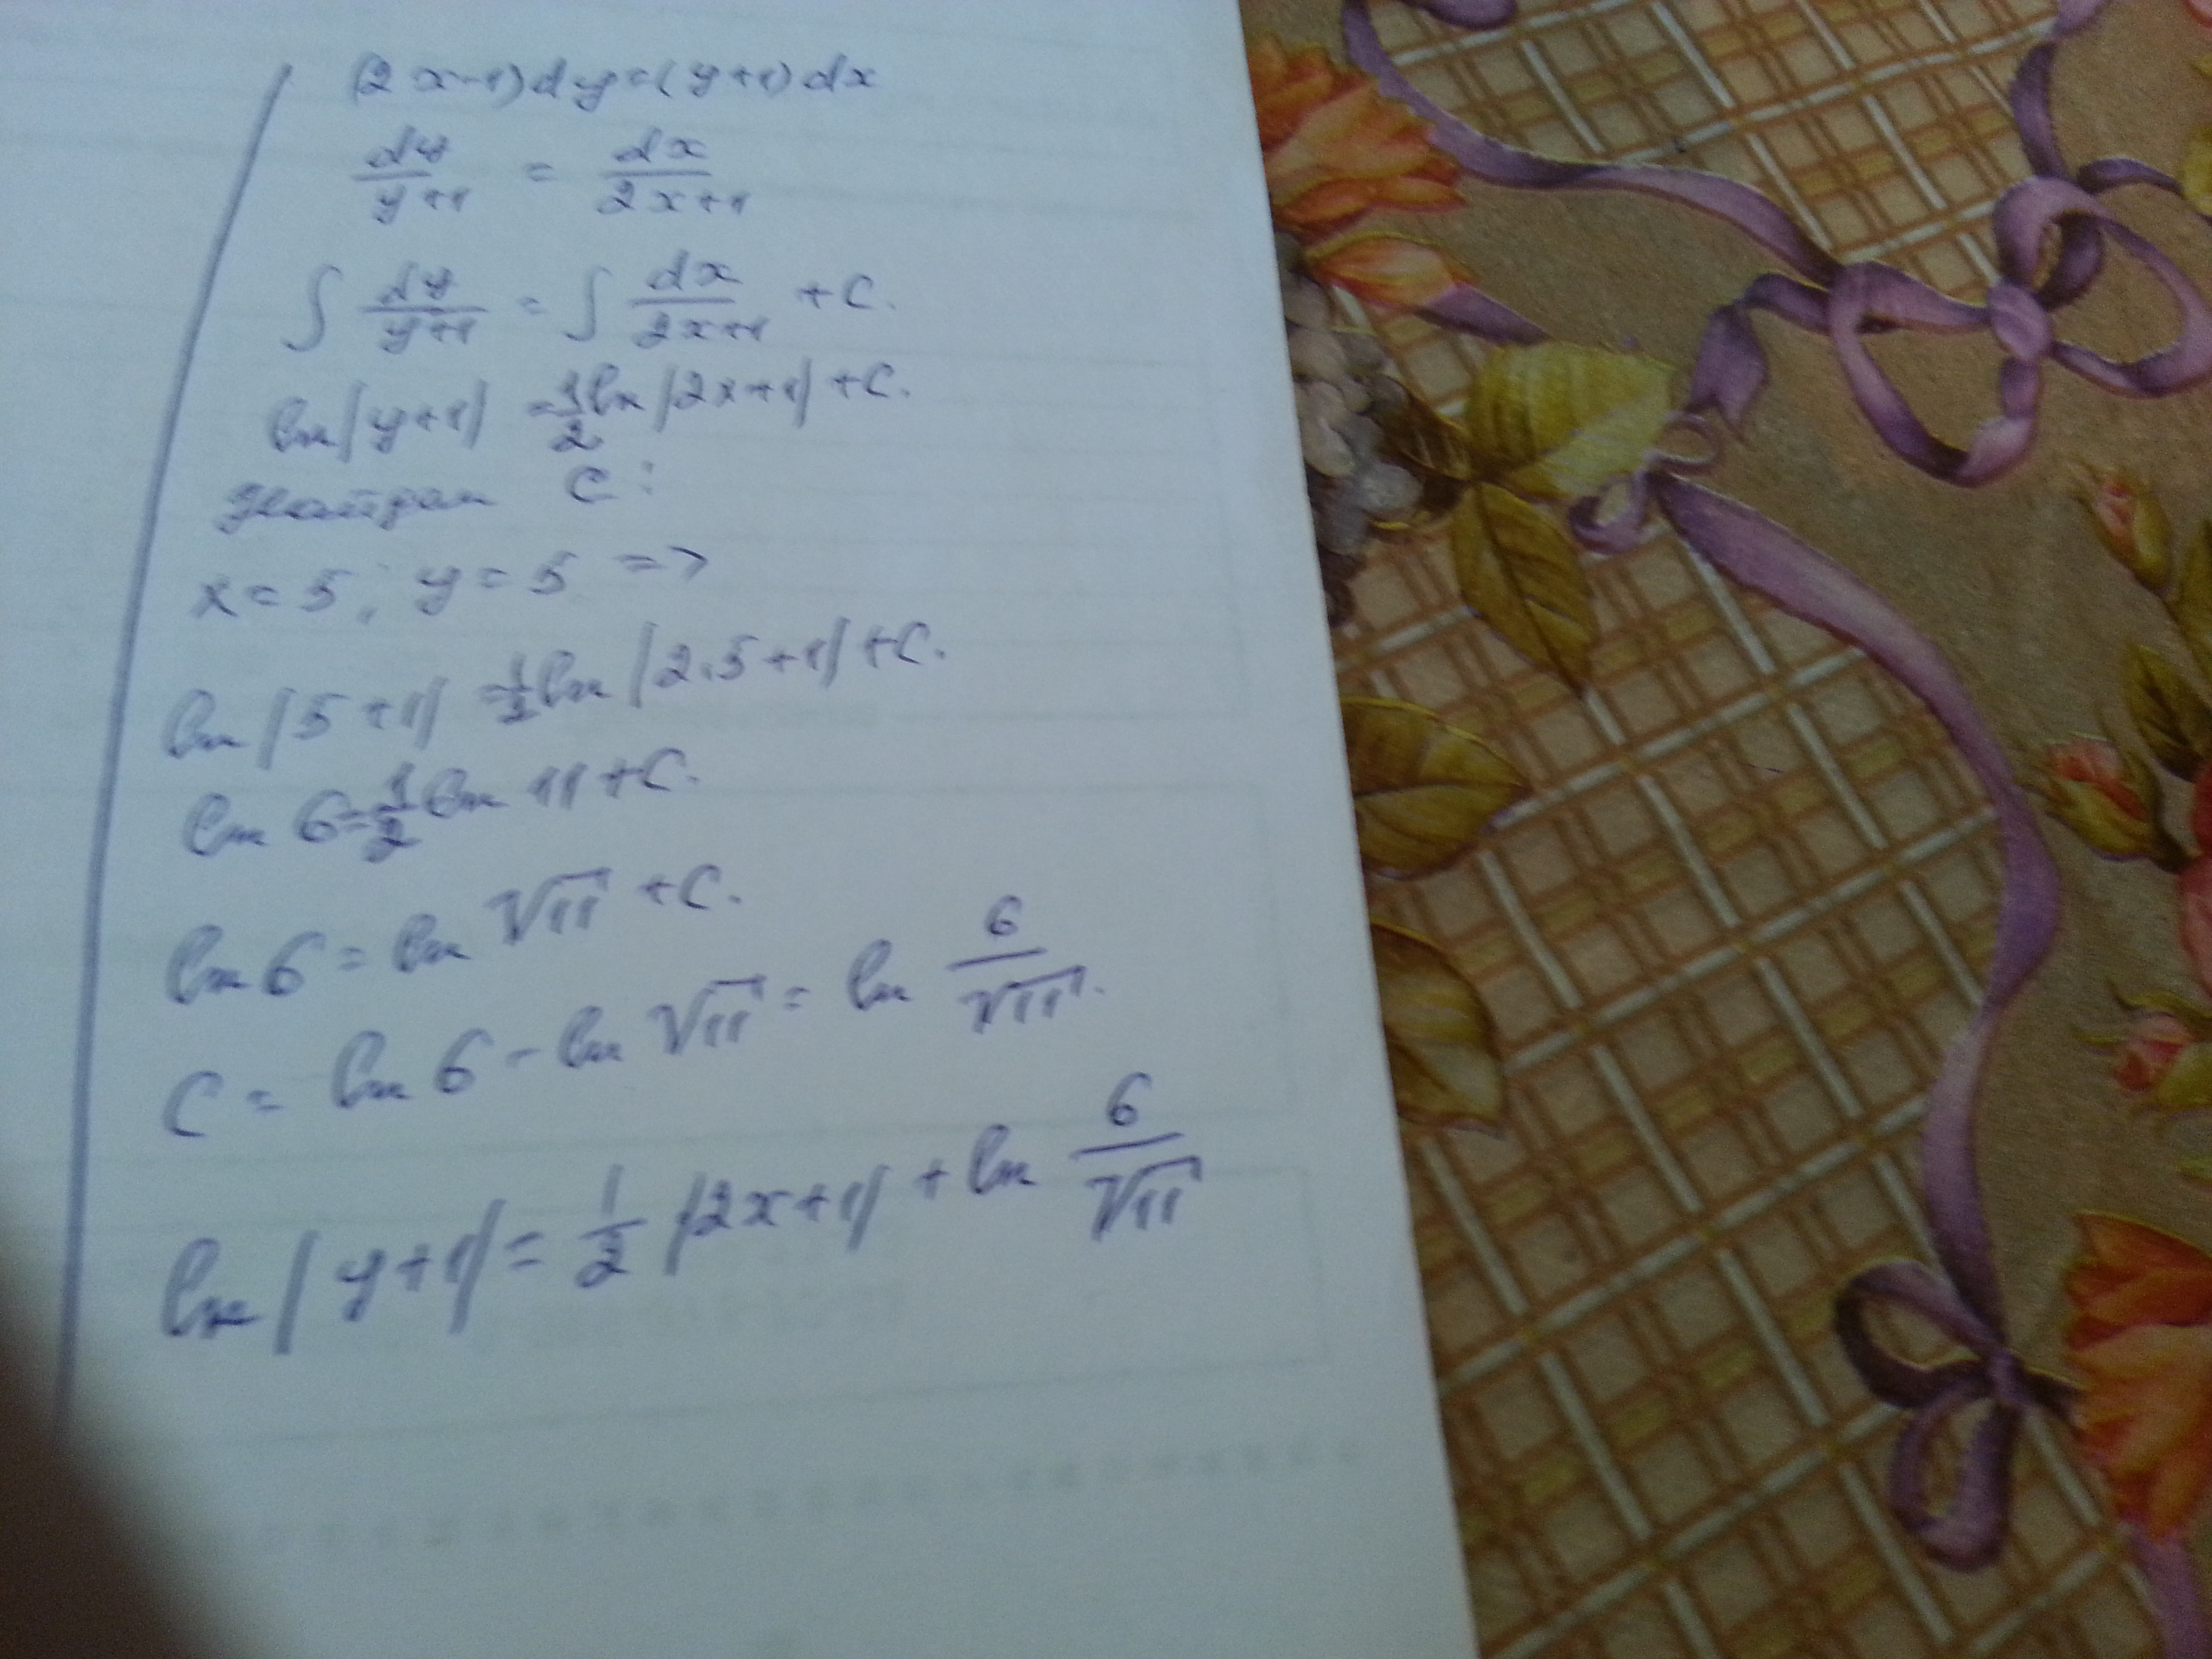 (2x-1)dy=(y+1)dx
dy/y+1 = dx/2x+1
∫ dy/y+1 = ∫ dx/2x+1 + C.
ln|y+1| = 1/2 ln|2x+1| + C.
C:
x=5, y=5 =>
ln|5+1| = 1/2 ln|2·5+1| + C.
ln 6 = 1/2 ln 11 + C.
ln 6 = ln √11 + C.
C = ln 6 - ln √11 = ln 6/√11.
ln|y+1| = 1/2 |2x+1| + ln 6/√11